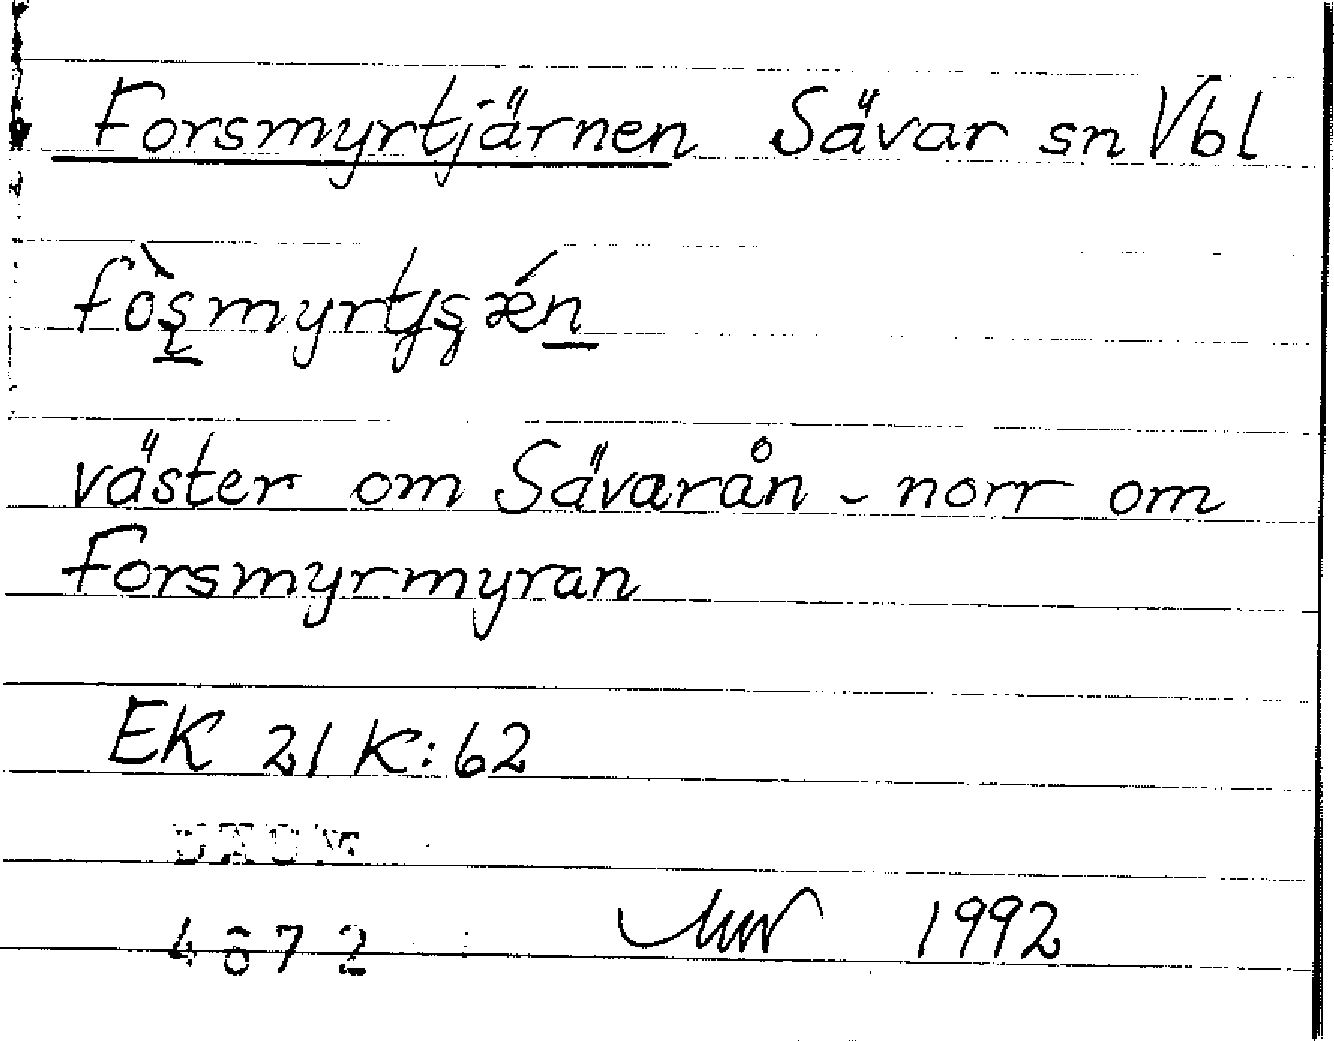 Forsmyrtjärnen Sävar sn Vbl
väster om Sävarån - norr om
Forsmyrmyran
EK 21 K:62
DAUM
1992